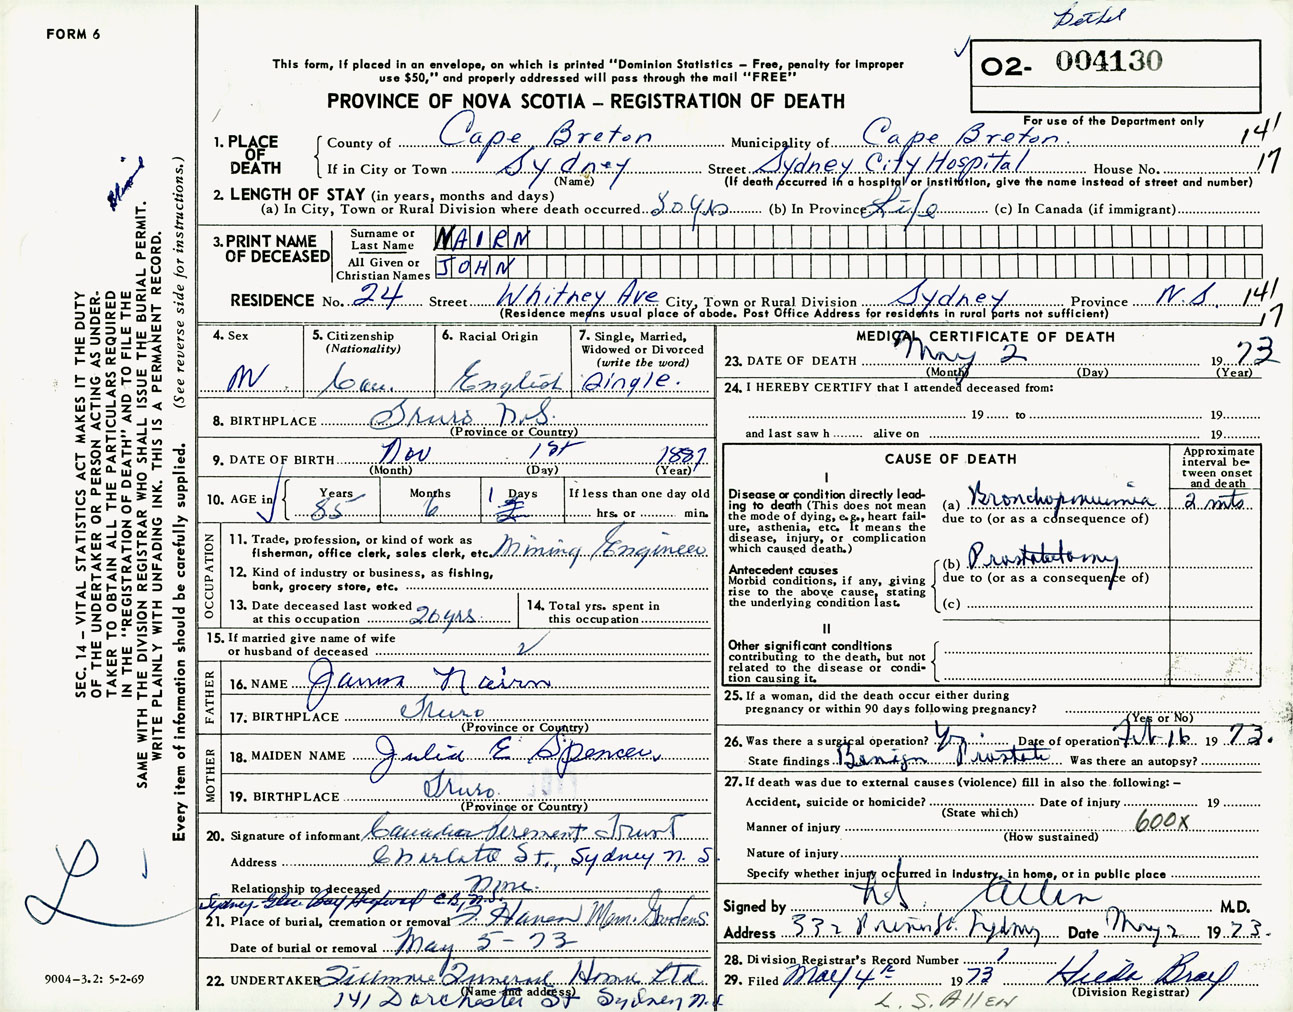 FORM 6
Bethel
This form, if placed in an envelope, on which is printed "Dominion Statistics – Free, penalty for improper
use $50," and properly addressed will pass through the mail "FREE"
PROVINCE OF NOVA SCOTIA – REGISTRATION OF DEATH
02- 004130
For use of the Department only
1. PLACE OF DEATH
County of Cape Breton Municipality of Cape Breton. 141
If in City or Town Sydney Street Sydney City Hospital House No. 17
(Name) (If death occurred in a hospital or institution, give the name instead of street and number)
2. LENGTH OF STAY (in years, months and days)
(a) In City, Town or Rural Division where death occurred 30 yrs (b) In Province Life (c) In Canada (if immigrant)
3. PRINT NAME OF DECEASED
Surname or Last Name NAIRN
All Given or Christian Names JOHN
RESIDENCE No. 24 Street Whitney Ave City, Town or Rural Division Sydney Province N.S 141
(Residence means usual place of abode. Post Office Address for residents in rural parts not sufficient) 17
4. Sex M
5. Citizenship (Nationality) Can.
6. Racial Origin English
7. Single, Married, Widowed or Divorced (write the word) Single.
8. BIRTHPLACE Truro N.S.
(Province or Country)
9. DATE OF BIRTH Nov 1st 1887
(Month) (Day) (Year)
10. AGE in Years 85 Months 6 Days 1
If less than one day old
hrs. or min.
OCCUPATION
11. Trade, profession, or kind of work as
fisherman, office clerk, sales clerk, etc. Mining Engineer
12. Kind of industry or business, as fishing,
bank, grocery store, etc.
13. Date deceased last worked
at this occupation 20 yrs.
14. Total yrs. spent in
this occupation
15. If married give name of wife
or husband of deceased
FATHER
16. NAME James Nairn
17. BIRTHPLACE Truro
(Province or Country)
MOTHER
18. MAIDEN NAME Julia E Spencer.
19. BIRTHPLACE Truro.
(Province or Country)
20. Signature of informant Canada Permanent Trust
Address Charlotte St., Sydney N.S
Relationship to deceased None.
Sydney Glace Bay Highway C.B., N.S.
21. Place of burial, cremation or removal F. Haven Mem. Gardens
Date of burial or removal May 5-73
22. UNDERTAKER Fillmore Funeral Home Ltd
(Name and address)
141 Dorchester St Sydney N.S
MEDICAL CERTIFICATE OF DEATH
23. DATE OF DEATH May 2 1973
(Month) (Day) (Year)
24. I HEREBY CERTIFY that I attended deceased from:
19 to 19
and last saw h alive on 19
CAUSE OF DEATH
Approximate interval between onset and death
I
Disease or condition directly lead-
ing to death (This does not mean
the mode of dying, e.g., heart fail-
ure, asthenia, etc. It means the
disease, injury, or complication
which caused death.)
(a) Bronchopneumia 2 mts
due to (or as a consequence of)
Antecedent causes
Morbid conditions, if any, giving
rise to the above cause, stating
the underlying condition last.
(b) Prostatetomy
due to (or as a consequence of)
(c)
II
Other significant conditions
contributing to the death, but not
related to the disease or condi-
tion causing it.
25. If a woman, did the death occur either during
pregnancy or within 90 days following pregnancy?
(Yes or No)
26. Was there a surgical operation? Yes. Date of operation Feb 16 1973.
State findings Benign Prostate Was there an autopsy?
27. If death was due to external causes (violence) fill in also the following: –
Accident, suicide or homicide? Date of injury 19
(State which)
Manner of injury 600X
(How sustained)
Nature of injury
Specify whether injury occurred in Industry, in home, or in public place
Signed by Allen M.D.
Address 332 Prince St. Sydney Date May 2 1973.
28. Division Registrar's Record Number
29. Filed May 4th 1973 Hilda Bray
(Division Registrar)
L. S. ALLEN
SEC. 14 – VITAL STATISTICS ACT MAKES IT THE DUTY
OF THE UNDERTAKER OR PERSON ACTING AS UNDER-
TAKER TO OBTAIN ALL THE PARTICULARS REQUIRED
IN THE "REGISTRATION OF DEATH" AND TO FILE THE
SAME WITH THE DIVISION REGISTRAR WHO SHALL ISSUE THE BURIAL PERMIT.
WRITE PLAINLY WITH UNFADING INK. THIS IS A PERMANENT RECORD.
Every item of information should be carefully supplied. (See reverse side for instructions.)
L
9004-3.2: 5-2-69